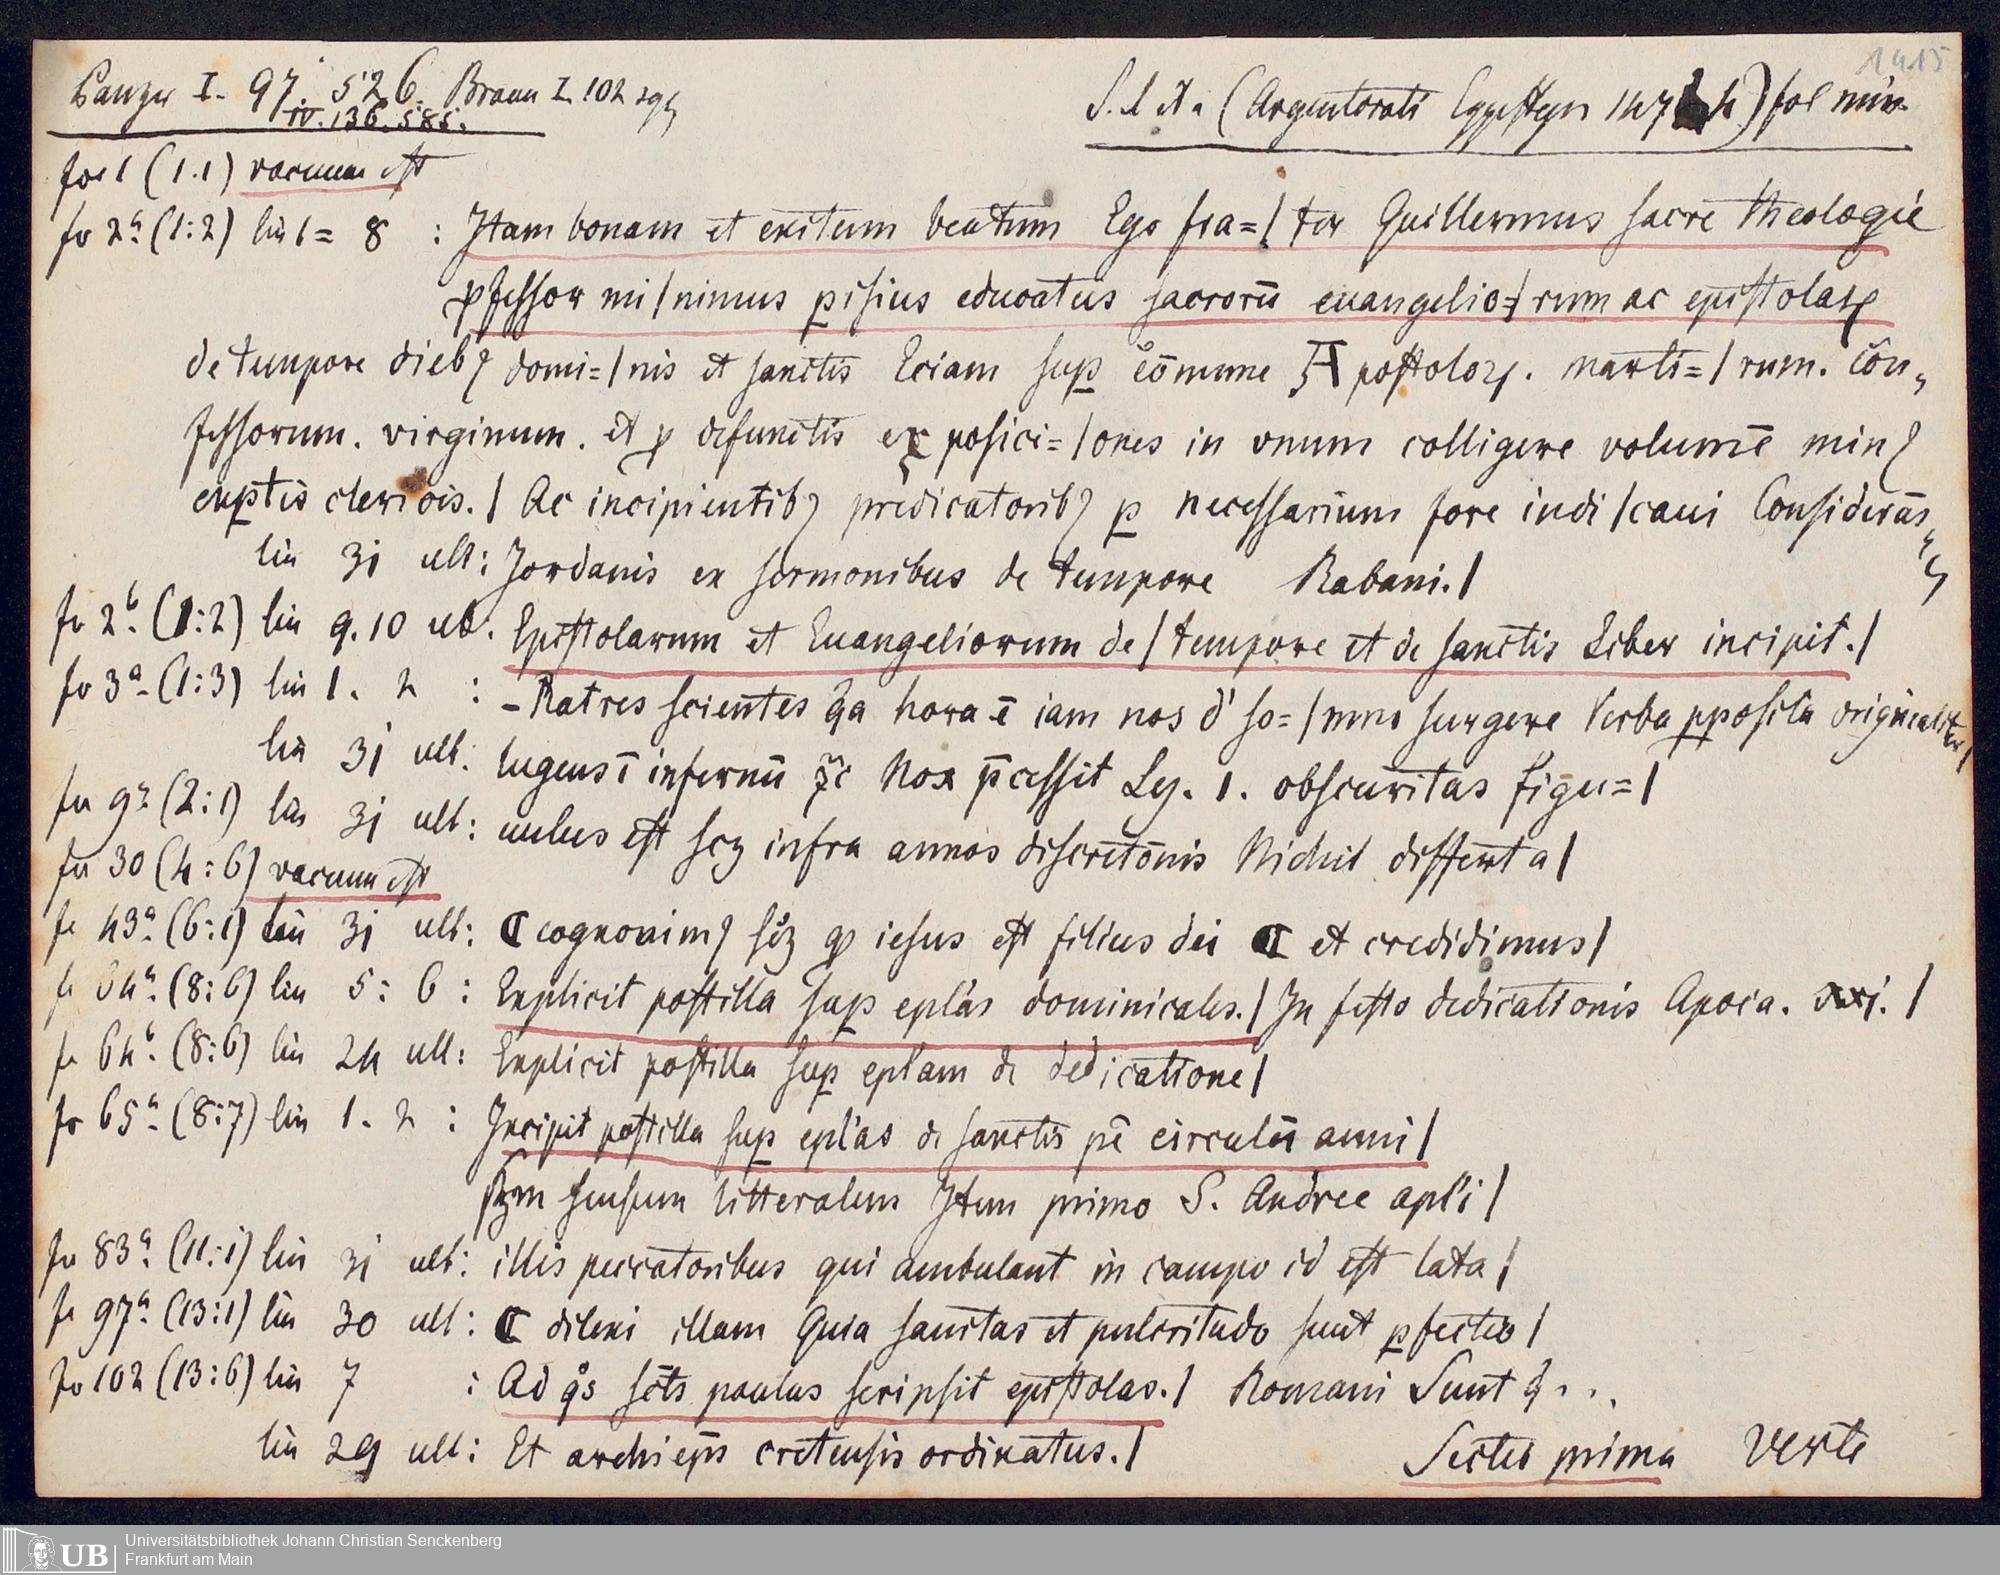 Panzer I. 97. 526. Braun I. 102 sq
IV. 136. 585.
S. l. et a (Argentorati Eggesteyn 147 4) fol min.
1415
fol 1 (1.1) vacuum est
fo 2ª (1:2) lin 1 = 8 : Itam bonam et exitum beatum Ego fra=/ ter Guillermus sacre theologie
ꝓfessor mi/nimus ꝑisius educatus sacrorū euangelio=/ rum ac epistolaꝝ
de tempore diebꝫ domi=/nis et sanctis Eciam suꝑ cōmune Apostoloꝝ. marti=/rum. con„
fessorum. virginum. et ꝓ defunctis exposici=/ones in vnum colligere volumē minꝰ
exꝑtis clericis./ Ac incipientibꝫ predicatoribꝫ ꝑ necessarium fore iudi/caui Considerās
lin 31 ult: Jordanis ex sermonibus de tempore Rabani./
fo 2b. (1:2) lin 9.10 ult. Epistolarum et Euangeliorum de/tempore et de sanctis Liber incipit./
fo 3ª (1:3) lin 1. 2 : -Ratres scientes qa hora ē iam nos d' so=/mno surgere Verba ꝓposita originaliter/
lin 31 ult: lugens ī infernū ꝛc Nox p̄cessit Ley. 1. obscuritas figu=/
fo 9ª (2:1) lin 31 ult: uulus est scꝫ infra annos discretōnis Nichil differt a/
fo 30 (4:6) vacuum est
fo 43ª (6:1) lin 31 ult: ℂ cognouimꝰ scꝫ ꝙ iesus est filius dei ℂ et credidimus/
fo 64ª. (8:6) lin 5: 6 : Explicit postilla suꝑ epl'as dominicales./ In festo dedicationis Apoca. xxj. /
fo 64b. (8:6) lin 24 ult: Explicit postilla suꝑ epl'am de dedicatione/
fo 65ª (8:7) lin 1. 2 : Incipit postilla suꝑ epl'as de sanctis pē circulū anni/
sensum litteralem Item primo S. Andree apl'i/
fo 83ª (11:1) lin 31 ult: illis peccatoribus qui ambulant in campo id est lata/
fo 97ª (13:1) lin 30 ult: ℂ dilexi illam Quia sanitas et pulcritudo sunt ꝑfectio/
fo 102 (13:6) lin 7 : Ad q°s sc̄ts paulus scripsit epistolas./ Romani Sunt ...
lin 29 ult: Et archiep̄s cretensis ordinatus./
Sectio prima Verte
Universitätsbibliothek Johann Christian Senckenberg
UB Frankfurt am Main